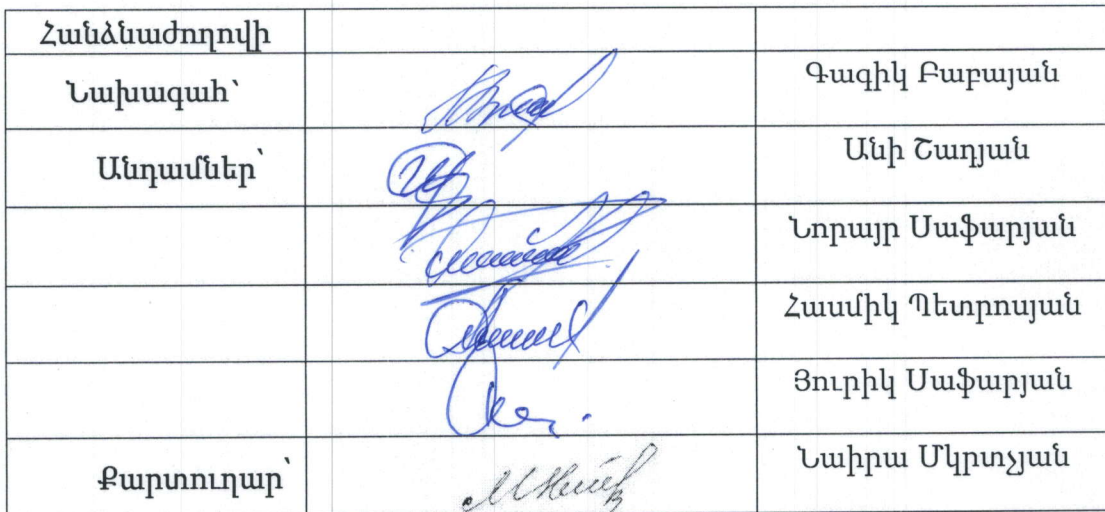 Հանձնաժողովի
Նախագահ՝ Գագիկ Բաբայան
Անդամներ՝ Անի Շաղյան
Նորայր Սաֆարյան
Հասմիկ Պետրոսյան
Յուրիկ Սաֆարյան
Քարտուղար՝ Նաիրա Մկրտչյան